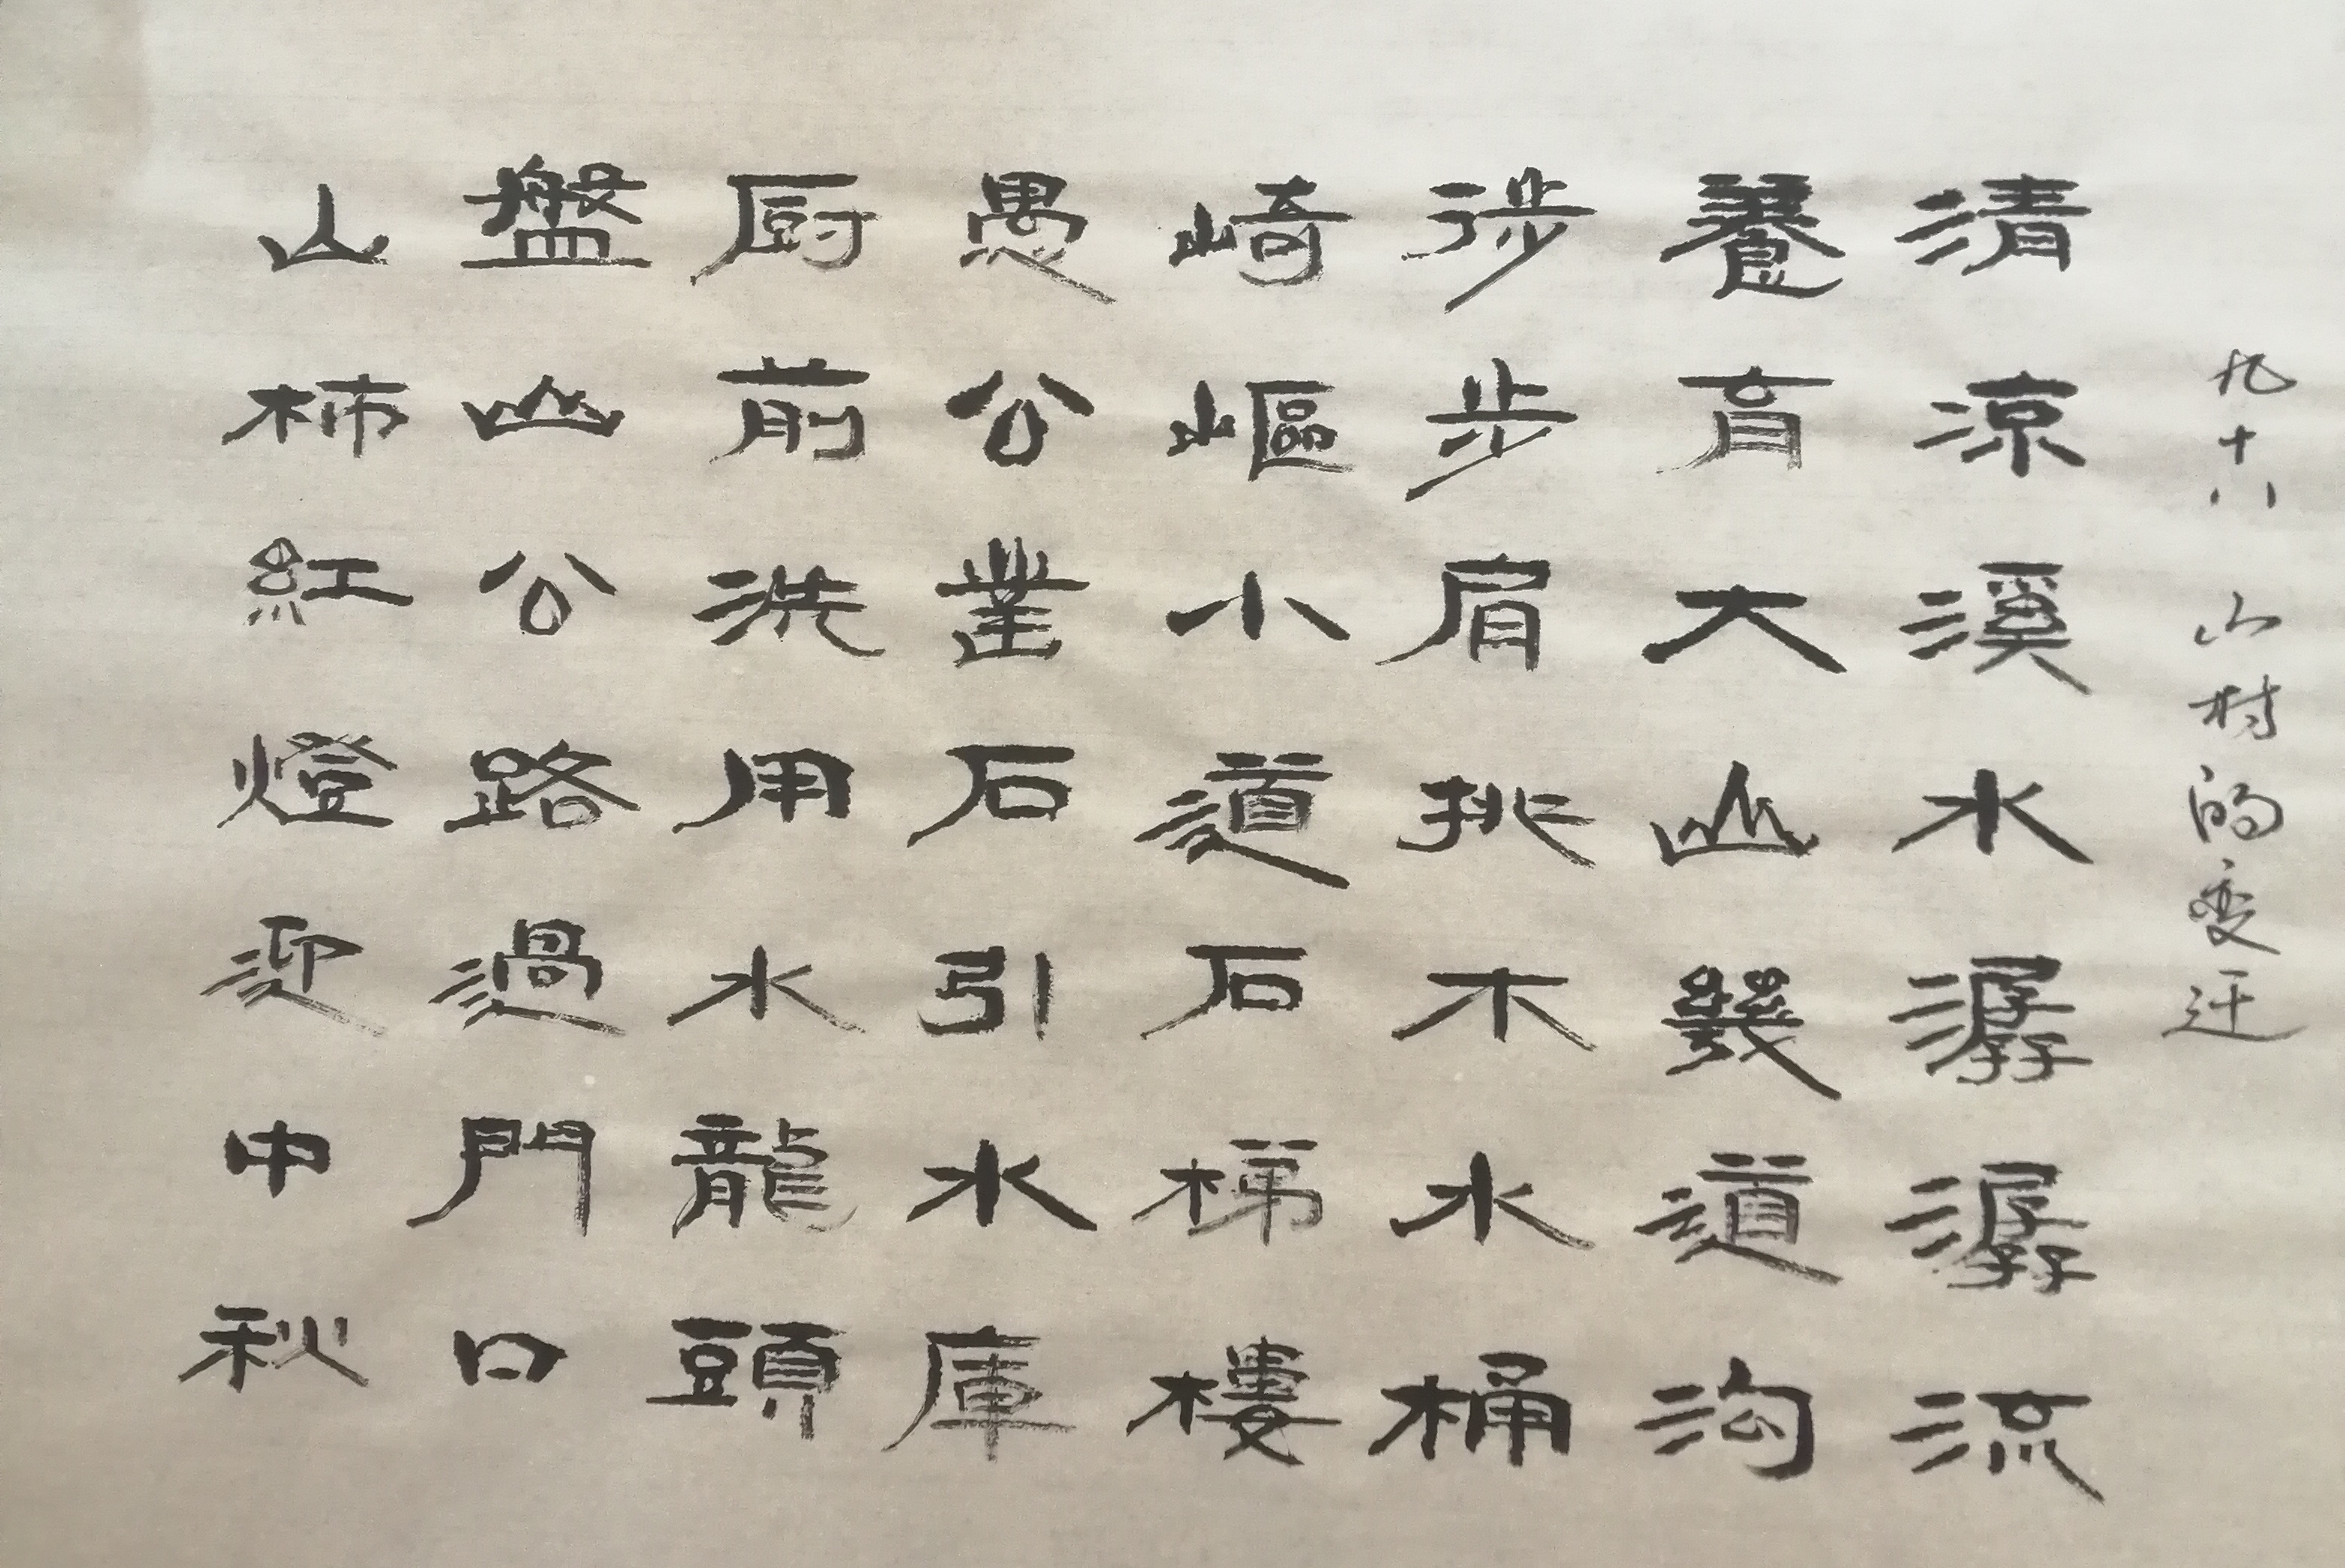 九十八 山村的变迁
清凉溪水潺潺流
養育大山幾道沟
涉步肩挑木水桶
崎嶇小道石梯樓
愚公凿石引水庫
厨前洗用水龍頭
盤山公路過門口
山柿紅燈迎中秋